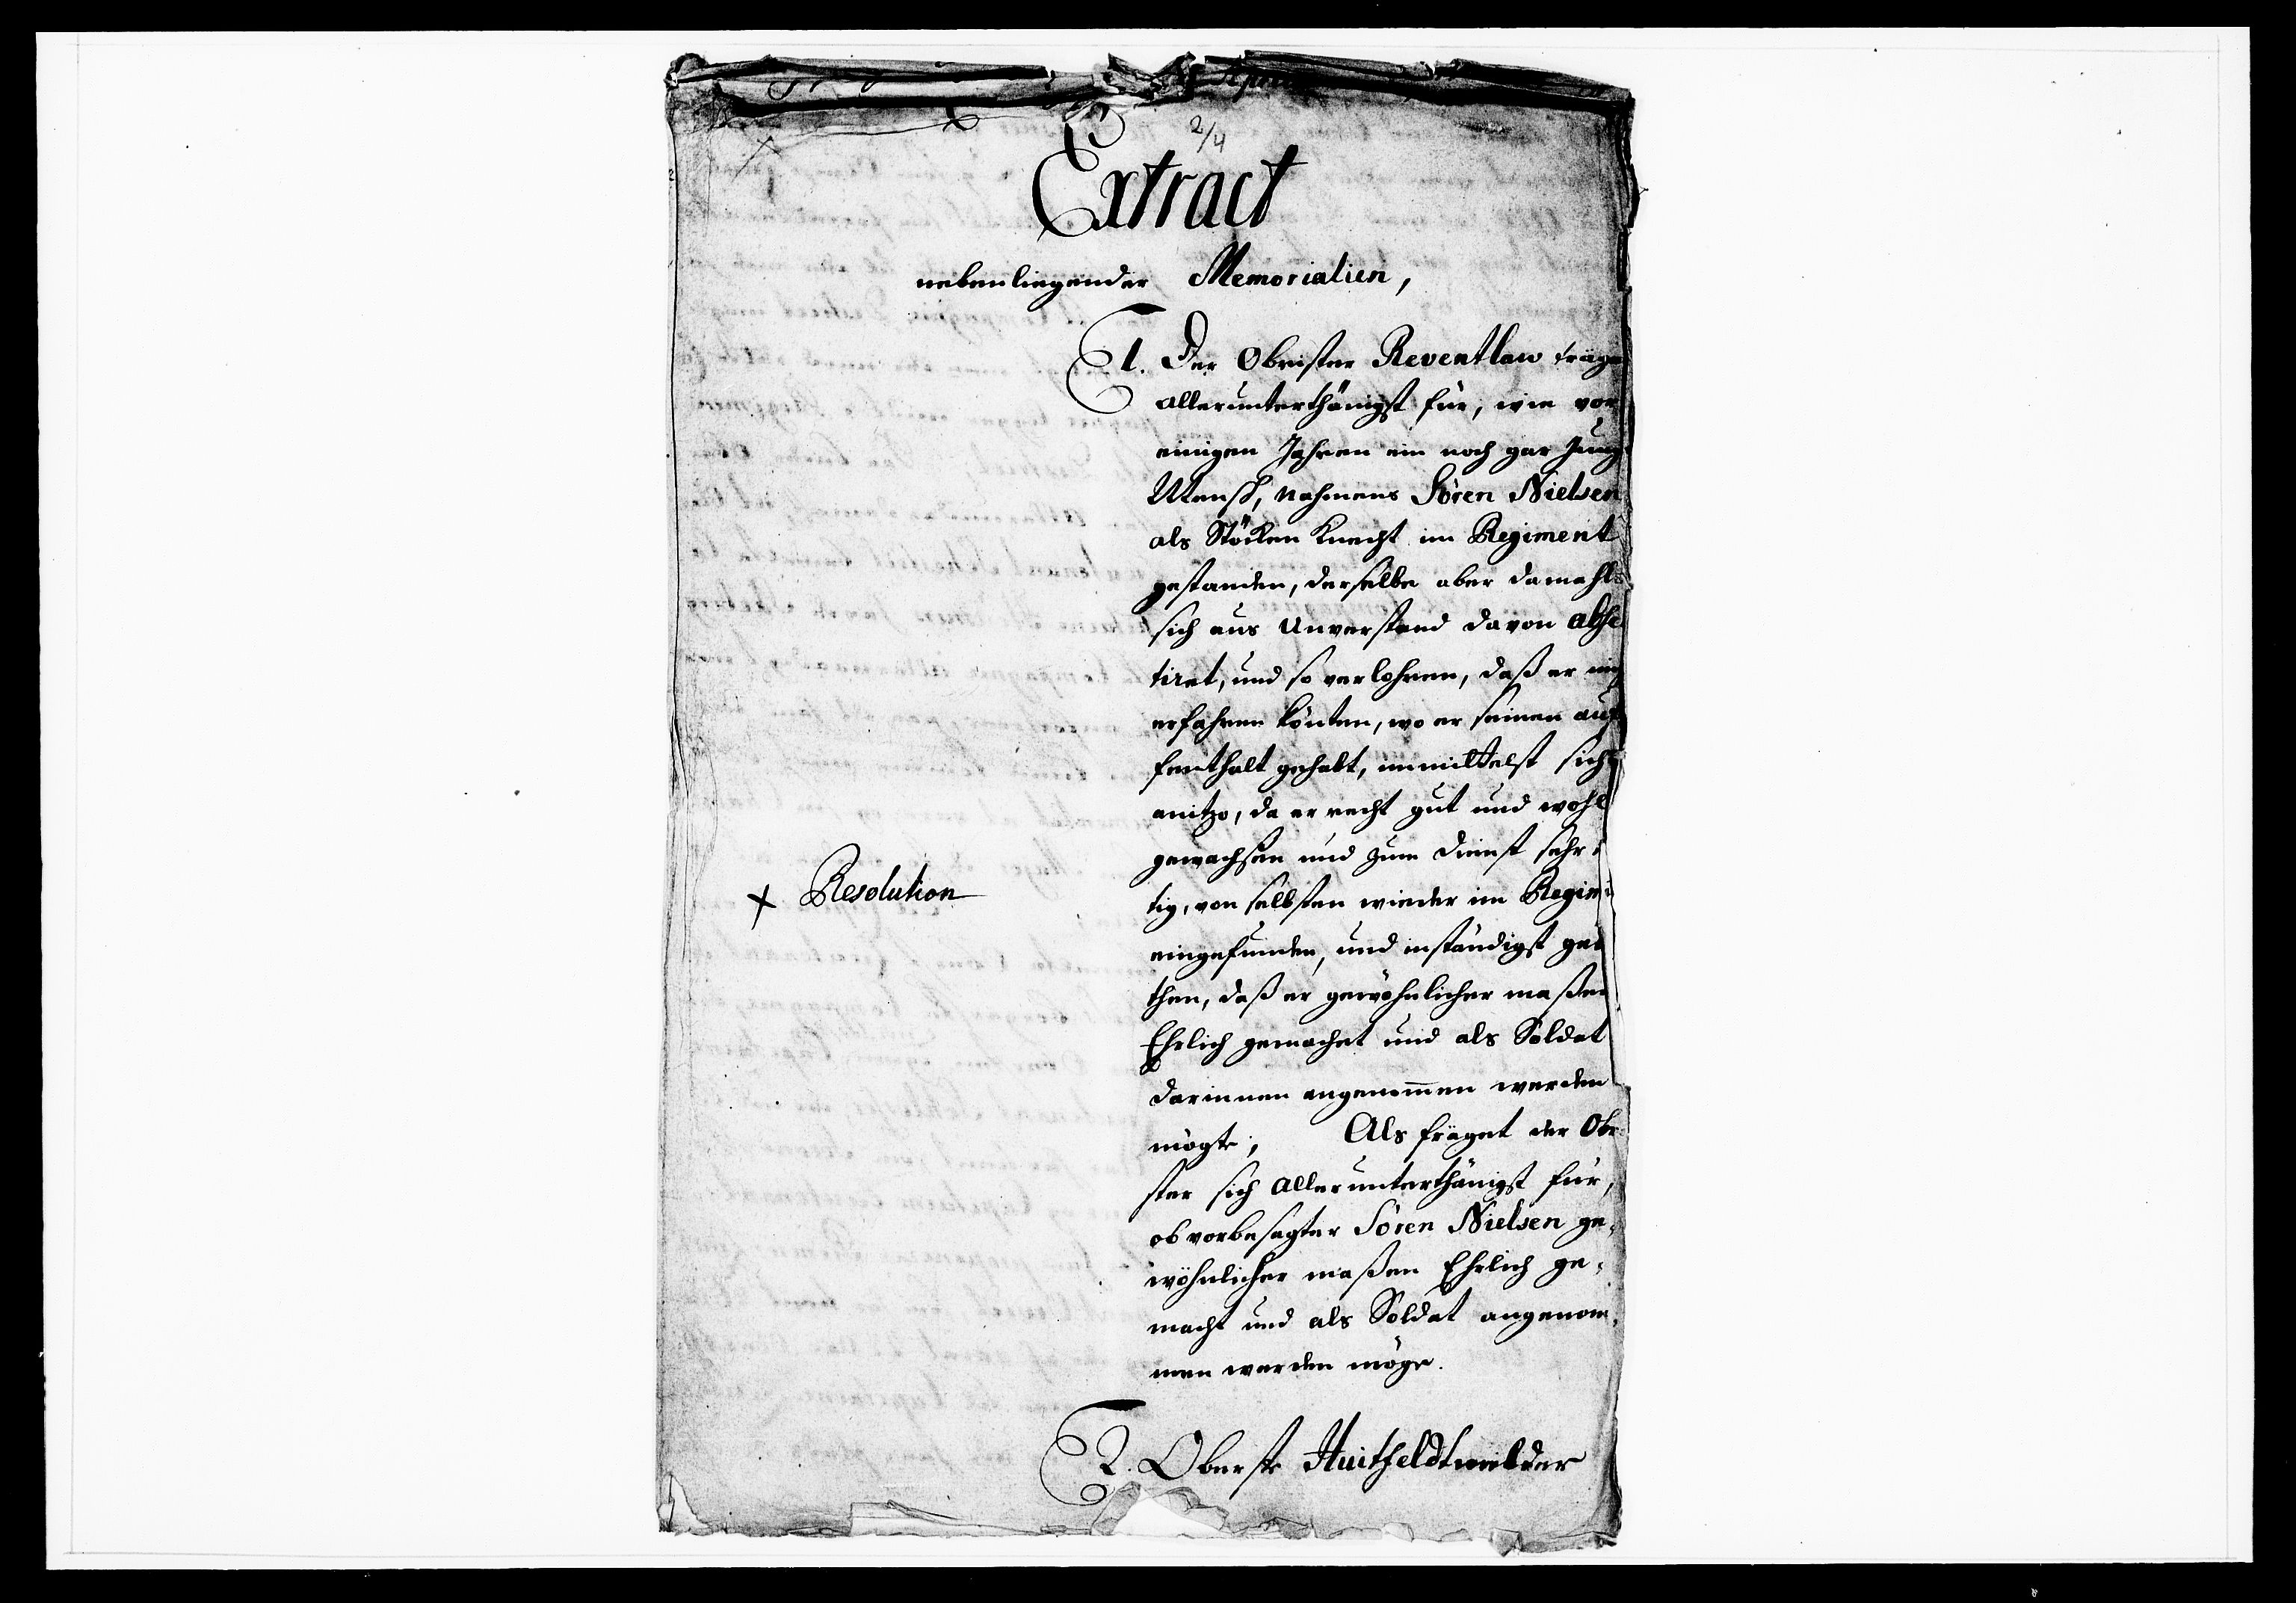 2/4
Extract
nebenliegender Memorialien,
1. Der Obrister Reventlaw träge
allerunterthänigst für, wie vor
einigen Jahren ein noch gar Jung
Mensch, nahmens Sören Nielsen
als Stöcken Knecht im Regiment
gestanden, derselbe aber damahls
sich aus Unverstand davon abse
tiret, und so verlohren, daß er
erfahren könten, wo er seinen auf
fenthalt gehabt, immittelst sich
anitzo, da er recht gut und wohl
gewachsen und zum dienst sehr
Resolution
tig, von selbsten wieder im Regim
eingefunden, und inständigst gebe
then, daß er gewöhnlicher maßen
Ehrlich gemachet und als Soldat
darinnen angenom̅en werden
mögte; Als fräget der Obr
ster sich allerunterthänigst für,
ob vorbesagter Sören Nielsen ge-
wöhnlicher maßen Ehrlich ge-
macht und als Soldat angenom-
men werden möge.
2. Oberste Huitfeldt melder